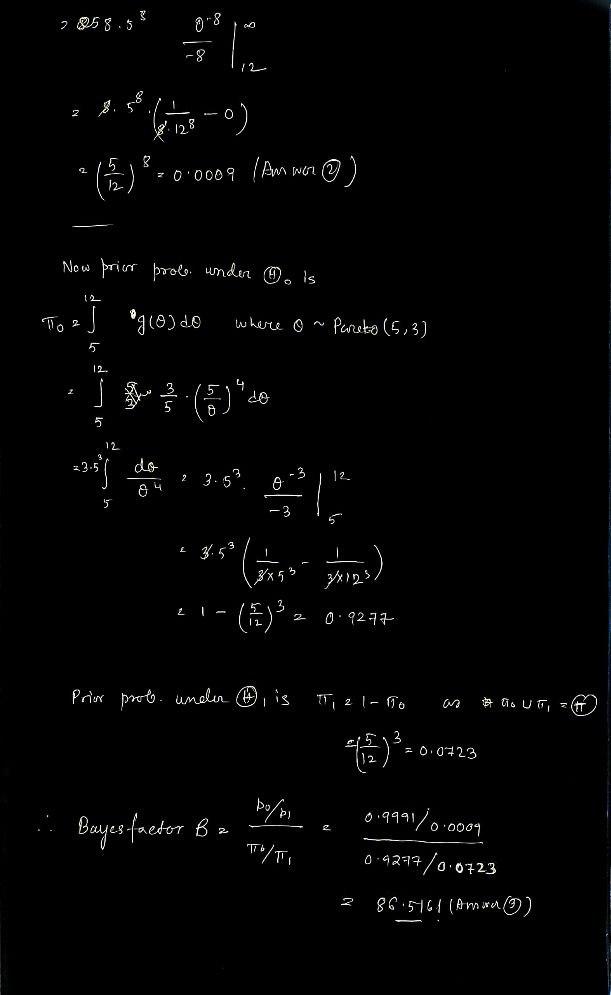 = 8 . 5^8 θ^-8 / -8 |_12^∞
= 8 . 5^8 . (1 / 8 . 12^8 - 0)
= (5/12)^8 = 0.0009 (Answer ②)
Now prior prob. under Ⓗ₀ is
π₀ = ∫_5^12 g(θ) dθ where θ ~ Pareto (5,3)
= ∫_5^12 3/5 . (5/θ)^4 dθ
= 3.5^3 ∫_5^12 dθ/θ^4 = 3.5^3 . θ^-3 / -3 |_5^12
= 3.5^3 (1 / 3×5^3 - 1 / 3×12^3)
= 1 - (5/12)^3 = 0.9277
Prior prob. under Ⓗ₁ is π₁ = 1 - π₀ as π₀ ∪ π₁ = Ⓗ
= (5/12)^3 = 0.0723
∴ Bayes factor B = (p₀/p₁) / (π₀/π₁) = (0.9991/0.0009) / (0.9277/0.0723)
= 86.5161 (Answer ③)